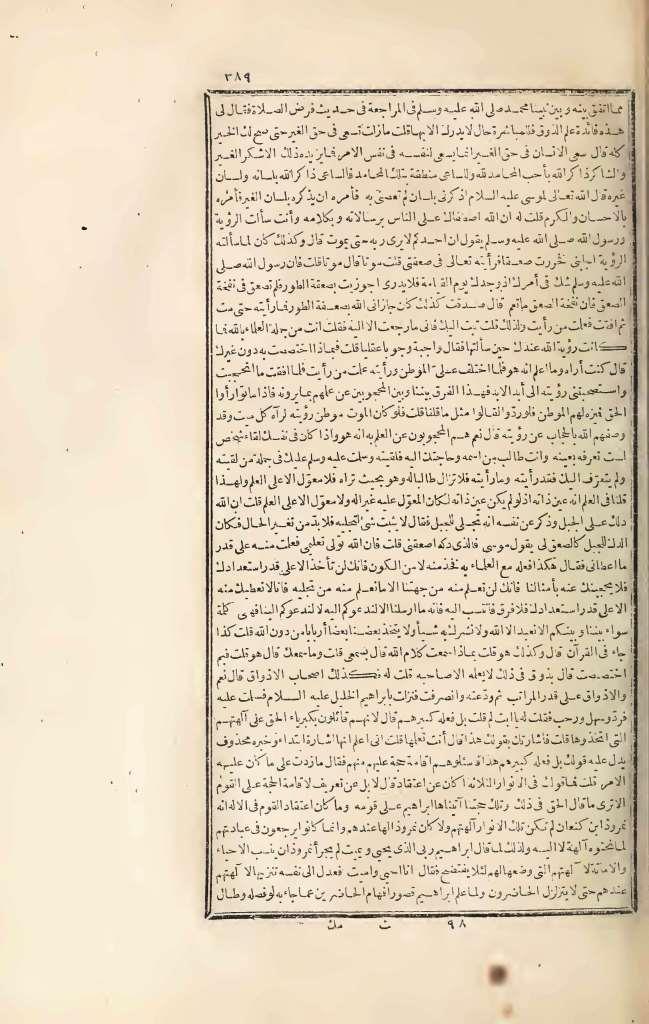 ٣٨٩
مما اتفق بينه وبين نبينا محمد صلى الله عليه وسلم فى المراجعة فى حديث فرض الصلاة فقال لى
هذه فائدة علم الذوق فللمباشرة حال لا يدرك الا بها قلت مازلت تسعى فى حق الغير حتى صح لك الخير
كله قال سعى الانسان فى حق الغير انما يسعى لنفسه فى نفس الامر فما يزيده ذلك الا شكر الغير
والشاكر ذاكر الله بأحب المحامد لله والساعى منطقة بتلك المحامد فالساعى ذاكر الله بلسانه ولسان
غيره قال الله تعالى لموسى عليه السلام اذكرنى بلسان لم تعصنى به فأمره ان يذكره بلسان الغير فأمره
بالاحسان والكرم قلت له ان الله اصطفاك على الناس برسالاته وبكلامه وأنت سألت الرؤية
ورسول الله صلى الله عليه وسلم يقول ان احدكم لا يرى ربه حتى يموت قال وكذلك كان لما سألته
الرؤية اجابنى فخررت صعقا فرأيته تعالى فى صعقتى قلت موتا قال موتا قلت فان رسول الله صلى
الله عليه وسلم شك فى أمرك اذ وجدك يوم القيامة فلا يدرى اجوزيت بصعقة الطور فلم تصعق فى نفخة
الصعق فان نفخة الصعق ما تعم قال صدقت كذلك كان جازانى الله بصعقة الطور فما رأيته حتى مت
ثم افقت فعلمت من رأيت ولذلك قلت تبت اليك فانى ما رجعت الا اليه فقلت انت من جملة العلماء بالله فما
كانت رؤية الله عندك حين سألتها فقال واجبة وجوبا عقليا قلت فبماذا اختصصت به دون غيرك
قال كنت أراه وما اعلم انه هو فلما اختلف على الموطن ورأيته علمت من رأيت فلما افقت ما انحجبت
واستصحبتنى رؤيته الى أبد الابد فهذا الفرق بيننا وبين المحجوبين عن علمهم بما يرونه فاذا ماتوا رأوا
الحق فميزه لهم الموطن فلو ردوا لقالوا مثل ما قلنا قلت فلو كان الموت موطن رؤيته لرآه كل ميت وقد
وصفهم الله بالحجاب عن رؤيته قال نعم هم المحجوبون عن العلم به انه هو واذا كان فى نفسك لقاء شخص
لست تعرفه بعينه وانت طالب من اسمه وحاجتك اليه فلقيته وسلمت عليه وسلم عليك فى جملة من لقيت
ولم يتعرف اليك فقد رأيته وما رأيته فلا تزال طالبا له وهو بحيث تراه فلا معول الا على العلم ولهذا
قلنا فى العلم انه عين ذاته اذ لو لم يكن عين ذاته لكان المعول عليه غير اله ولا معول الا على العلم قلت ان الله
دلك على الجبل وذكر عن نفسه انه تجلى للجبل فقال لا يثبت شئ لتجليه فلا بد من تغير الحال فكان
الدك للجبل كالصعق لى يقول موسى فالذى دكه اصعقنى قلت فان الله تولى تعليمى فعلمت منه على قدر
ما اعطانى فقال هكذا فعله مع العلماء به فخذ منه لا من الكون فانك لن تأخذ الا على قدر استعدادك
فلا يحجبنك عنه بأمثالنا فانك لن تعلم منه من جهتنا الا ما نعلم منه من تجليه فانا لا نعطيك منه
الا على قدر استعدادك فلا فرق فانتسب اليه فانه ما ارسلنا الا لندعوكم اليه لا لندعوكم الينا فهى كلمة
سواء بيننا وبينكم الا نعبد الا الله ولا نشرك به شيأ ولا يتخذ بعضنا بعضا أربابا من دون الله قلت كذا
جاء فى القرآن قال وكذلك هو قلت بماذا سمعت كلام الله قال بسمعى قلت وما سمعك قال هو قلت فبم
اختصصت قال بذوق فى ذلك لا يعلمه الا صاحبه قلت له فكذلك اصحاب الاذواق قال نعم
والاذواق على قدر المراتب ثم ودعته وانصرفت فنزلت بابراهيم الخليل عليه السلام فسلمت عليه
فرد وسهل ورحب فقلت له يا ابت لم قلت بل فعله كبيرهم قال لانهم قائلون بكبرياء الحق على آلهتهم
التى اتخذوها قلت فاشارتك بقولك هذا قال أنت تعلمها قلت انى اعلم انها اشارة ابتداء وخبره محذوف
يدل عليه قولك بل فعله كبيرهم هذا فسئلوهم اقامة حجة عليهم منهم فقال ما زدت على ما كان عليه
الامر قلت فما قولك فى الانوار الثلاثة اكان عن اعتقاد قال لا بل عن تعريف لاقامة الحجة على القوم
الا ترى ما قال الحق فى ذلك وتلك حجتنا آتيناها ابراهيم على قومه وما كان اعتقاد القوم فى الاله انه
نمروذ ابن كنعان لم تكن تلك الانوار آلهتهم ولا كان نمروذ الها عندهم وانما كانوا يرجعون فى عبادتهم
لما نحتوه آلهة لا اليه ولذلك لما قال ابراهيم ربى الذى يحيى ويميت لم يجرأ نمروذ ان ينسب الاحياء
والاماتة لآلهتهم التى وضعها لهم لئلا يفتضح فقال انا احيى واميت فعدل الى نفسه تنزيها لآلهتهم
عندهم حتى لا يتزلزل الحاضرون ولما علم ابراهيم قصور افهام الحاضرين عما جاء به لو فصله وطال
٩٨ ث مك